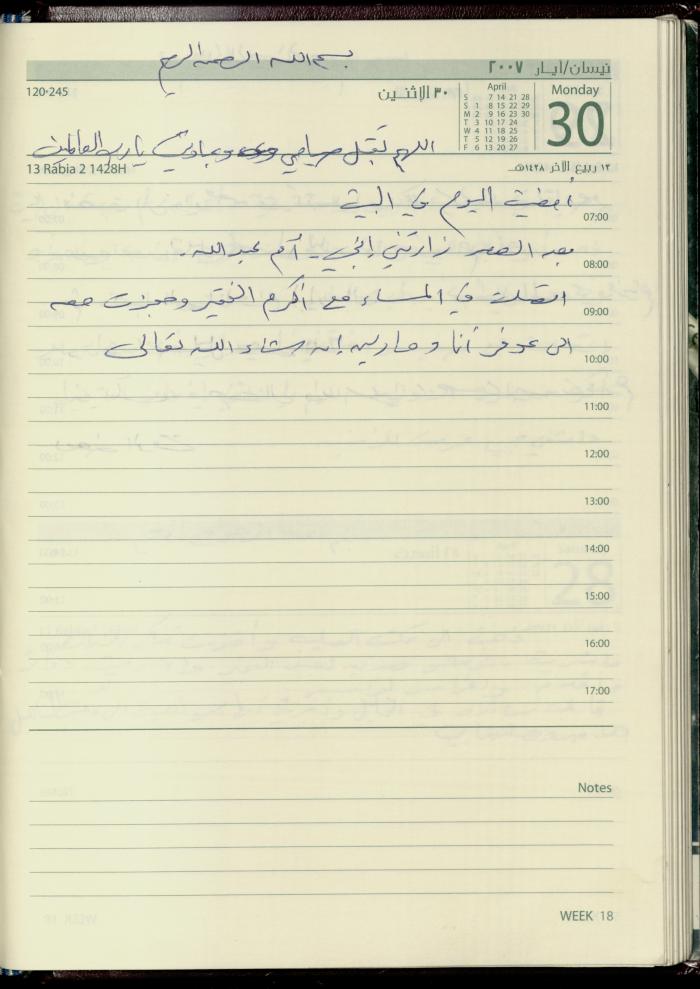 بسم الله الرحمن الرحيم
نيسان/أيـار ٢٠٠٧
120-245
٣٠ الإثنـين
April
S 7 14 21 28
S 1 8 15 22 29
M 2 9 16 23 30
T 3 10 17 24
W 4 11 18 25
T 5 12 19 26
F 6 13 20 27
Monday
30
اللهم تقبل صيامي وعبادتي يا رب العالمين
13 Rabia 2 1428H
١٣ ربيع الآخر ١٤٢٨هـ
أمضيت اليوم في البيت
07:00
بعد العصر زارتني إبنتي - أم عبد الله.
08:00
اتصلت في المساء مع أكرم الفقير وحجزت معه
09:00
الى عوفر أنا و ان شاء الله تعالى
10:00
11:00
12:00
13:00
14:00
15:00
16:00
17:00
Notes
WEEK 18